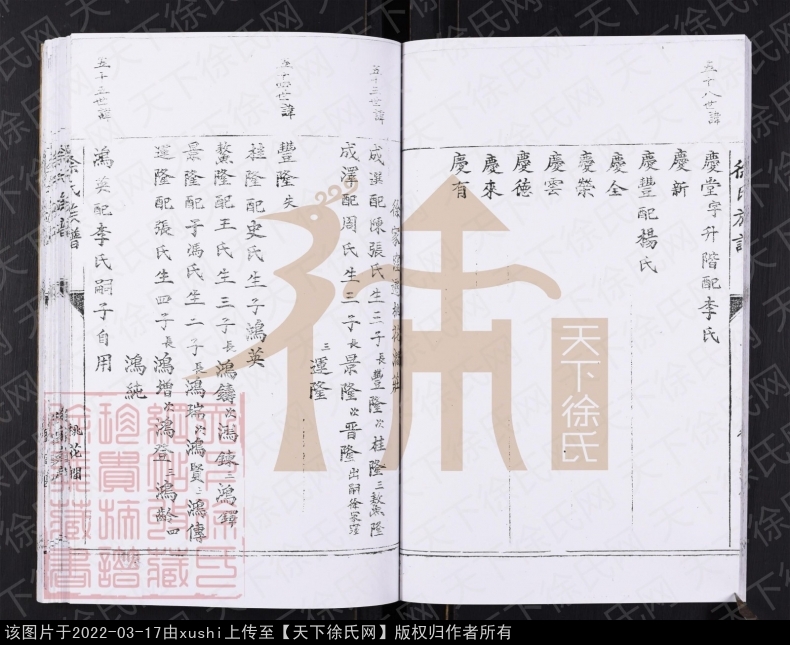 徐氏族譜
五十八世諱
慶堂字升階配李氏
慶新
慶豐配楊氏
慶全
慶榮
慶雲
慶德
慶來
慶有
五十三世諱
徐家窪遷桃花澗莊
成選配陳張氏生三子長豐隆次桂隆三鰲隆
成澤配周氏生三子長景隆次晋隆出嗣徐家窪
三運隆
五十四世諱
豐隆失
桂隆配史氏生子鴻英
鰲隆配王氏生三子長鴻鑄次鴻鍊三鴻鐸
景隆配子馮氏生二子長鴻瑞次鴻賢三鴻傳
運隆配張氏生四子長鴻增次鴻益三鴻齡四
鴻純
五十五世諱
鴻英配李氏嗣子自用
徐氏族譜
桃花澗
天下徐氏
天下徐氏网
该图片于2022-03-17由xushi上传至【天下徐氏网】版权归作者所有